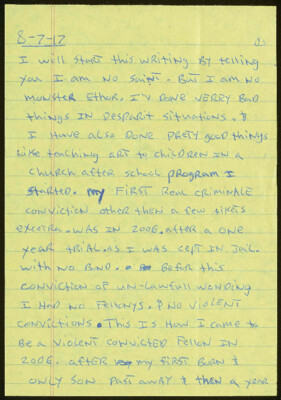 8-7-17
I will start this writing by telling
you I am no saint. But I am no
monster Ethor. I'v done verry bad
things in desparit situations. &
I have also done prety good things
like teaching art to children in a
church after school program I
started. my first real criminale
conviction other then a few tikets
excetra. was in 2006. after a one
year trial. as I was cept in jail.
with no bond. Befor this
conviction of un-lawfull wonding
I had no fellonys. & no violent
convictions. This is how I came to
be a violent convicted fellon in
2006. after my first born &
only son past away & then a year